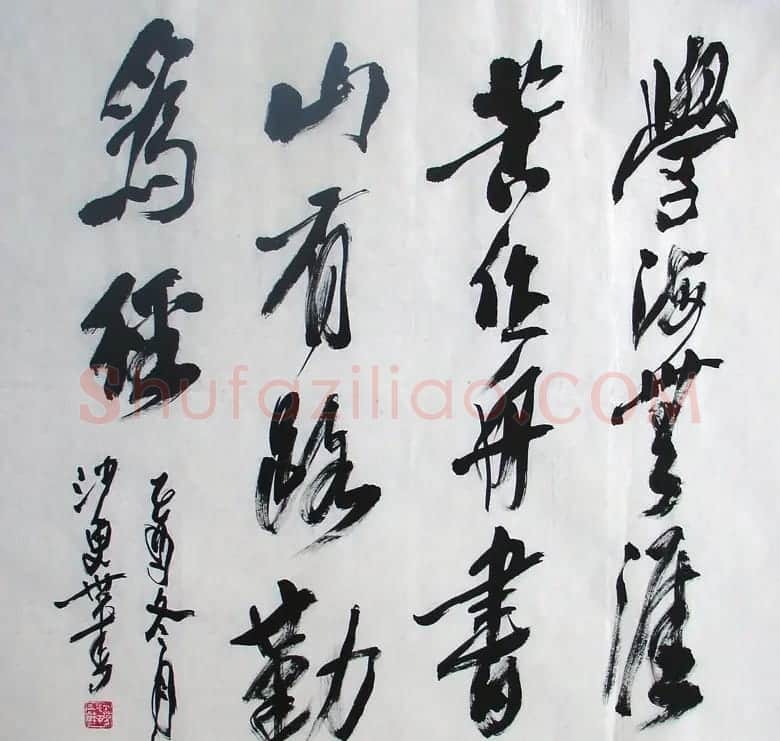 學海無涯
苦作舟書
山有路勤
為徑
乙酉冬月
沙更世書
Shufaziliao.COM